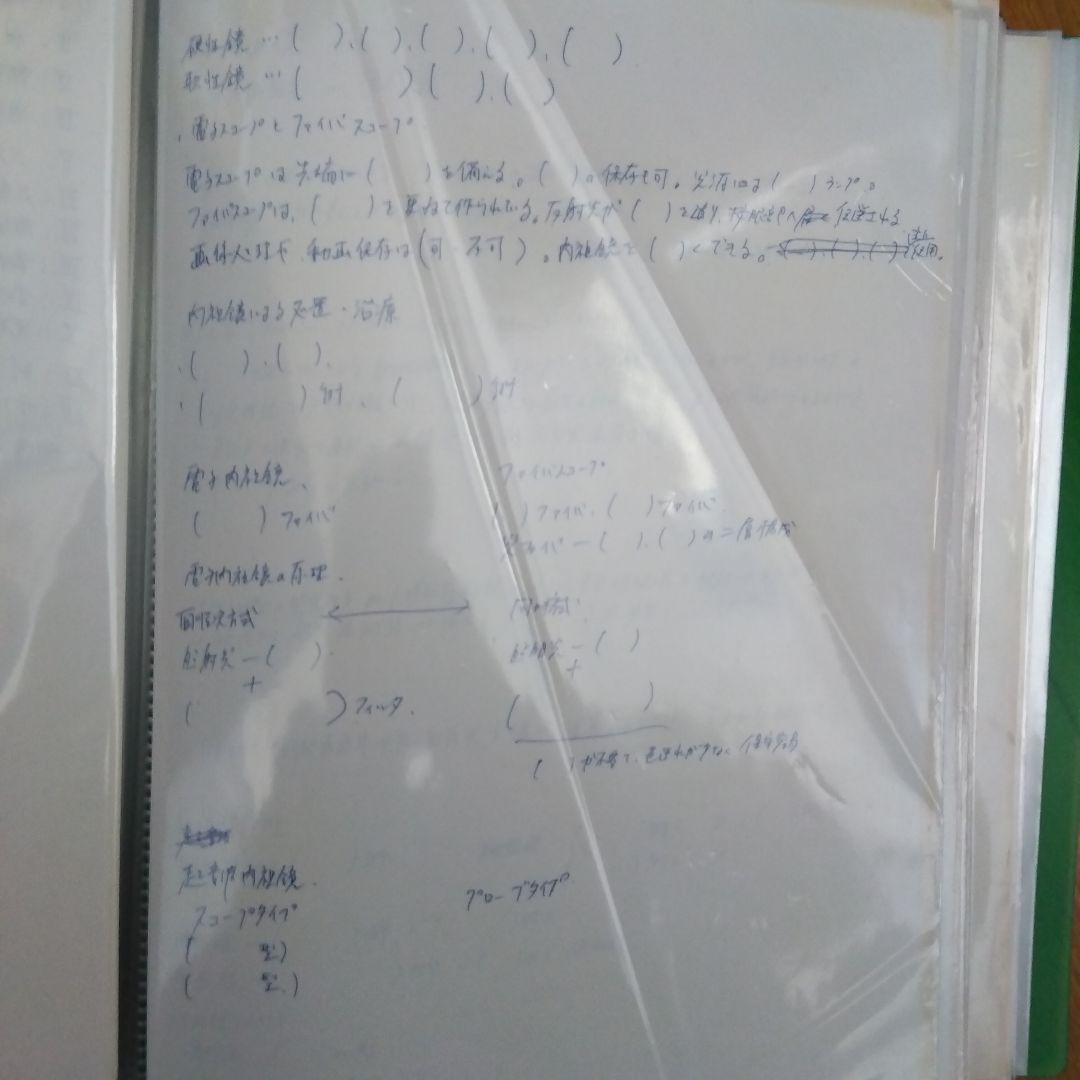 硬性鏡…( )、( )、( )、( )、( )
軟性鏡…( )( )、( )
、電子スコープとファイバースコープ
電子スコープは先端に( )を備える。( )の保存も可。光源には( )ランプ。
ファイバスコープは、( )を束ねて作られている。反射光が( )を通り、接眼部へ伝送される
画像処理や、動画保存は(可・不可)。内視鏡を( )くできる。( )、( )、( )で使用。
内視鏡による処置・治療
・( )、( )、
・( )術、( )術
電子内視鏡、 ファイバスコープ
( )ファイバ ( )ファイバ、( )ファイバ
光ファイバ―( )、( )の二層構成
電子内視鏡の原理、
面順次方式 ←→ 同時方式
照射光―( ) 照射光―( )
+ +
( )フィルタ、 ( )
( )が不要で、色ずれが少なく
超音波内視鏡、
スコープタイプ プローブタイプ
( 型)
( 型)